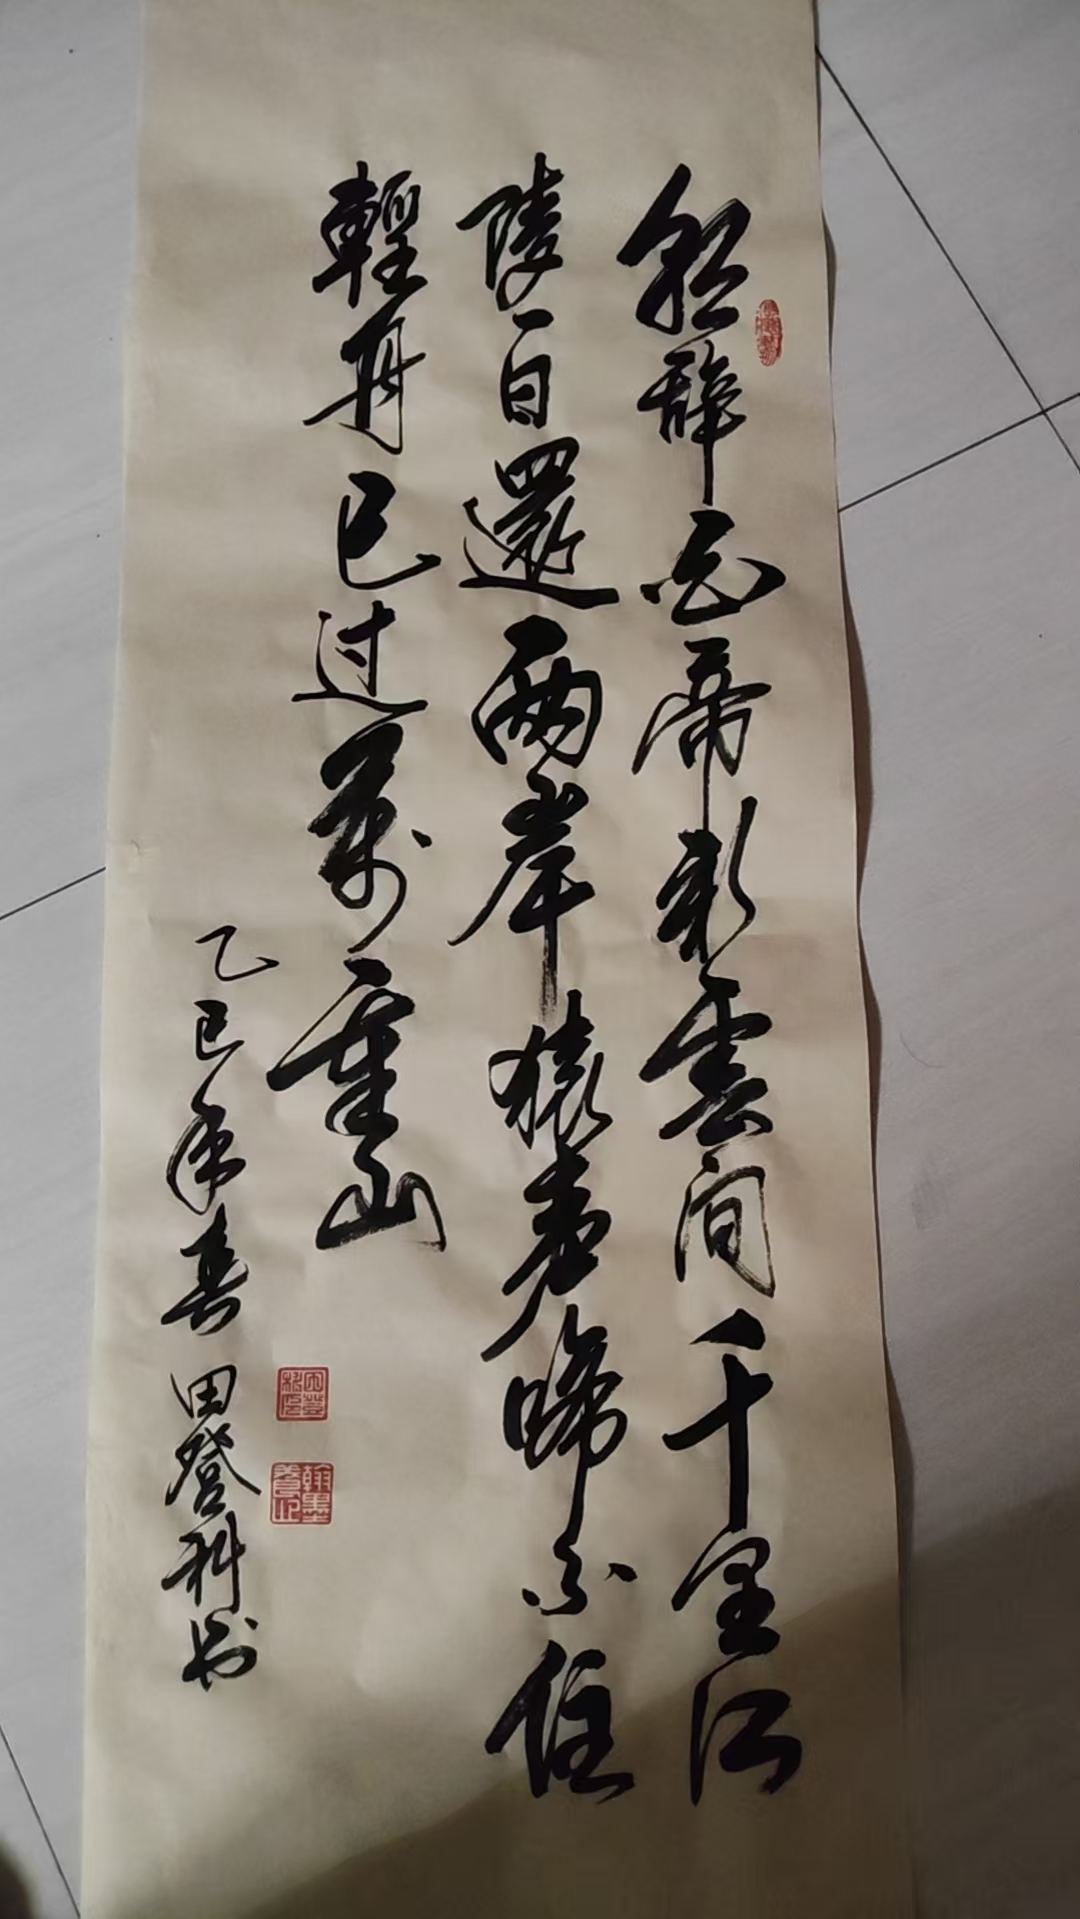 朝辞白帝彩雲间千里江
陵一日還兩岸猿声啼不住
輕舟已过萬重山
乙巳年春
田登科书